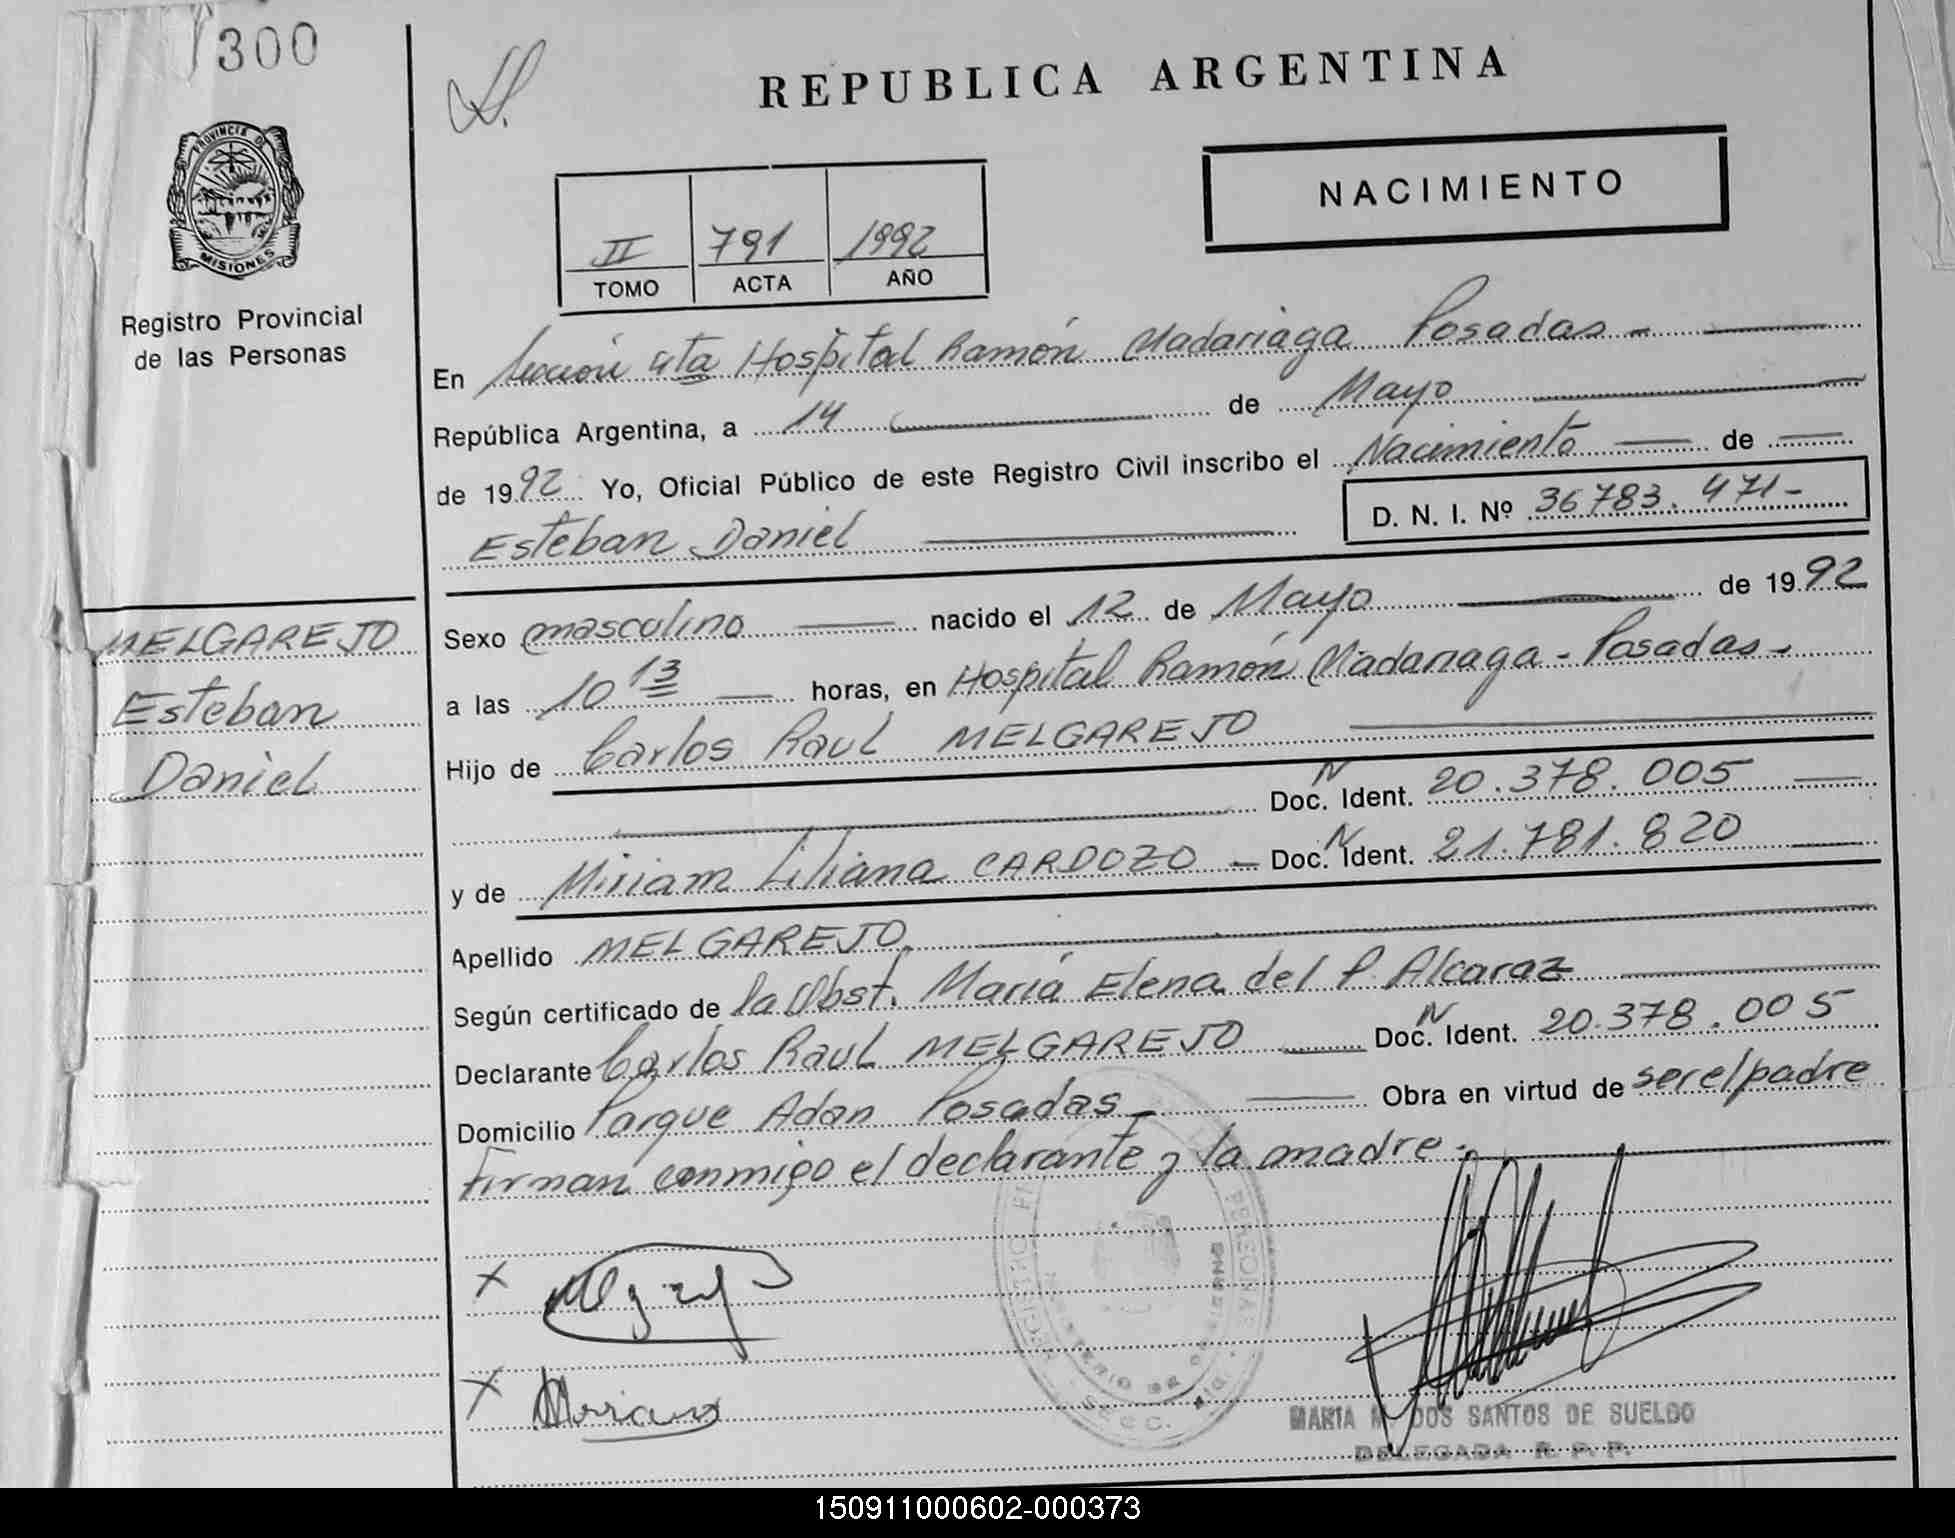 300
REPUBLICA ARGENTINA
NACIMIENTO
PROVINCIA DE
MISIONES
Registro Provincial
de las Personas
II 791 1992
TOMO ACTA AÑO
En Sección 4ta Hospital Ramón Madariaga Posadas -
República Argentina, a 14 de Mayo
de 1992 Yo, Oficial Público de este Registro Civil inscribo el Nacimiento de
Esteban Daniel D. N. I. Nº 36783.471-
MELGAREJO
Esteban
Daniel
Sexo masculino nacido el 12 de Mayo de 1992
a las 10 13 horas, en Hospital Ramón Madariaga - Posadas -
Hijo de Carlos Raul MELGAREJO
Doc. N Ident. 20.378.005
y de Miriam Liliana CARDOZO - Doc. N Ident. 21.781.820
Apellido MELGAREJO.
Según certificado de la Obst. María Elena del P. Alcaraz
Declarante Carlos Raul MELGAREJO Doc. N Ident. 20.378.005
Domicilio Parque Adan Posadas - Obra en virtud de ser el padre
Firman conmigo el declarante y la madre.-
X
X Miriam
MARIA M. DOS SANTOS DE SUELDO
DELEGADA R. P. P.
150911000602-000373